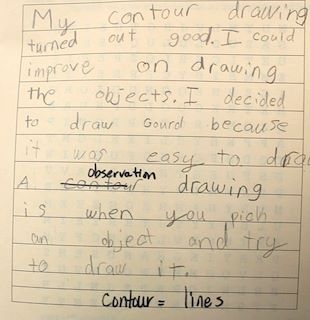 My contour drawing
turned out good. I could
improve on drawing
the objects. I decided
to draw Gourd because
it was easy to draw
observation
A contour drawing
is when you pick
an object and try
to draw it.
Contour = lines